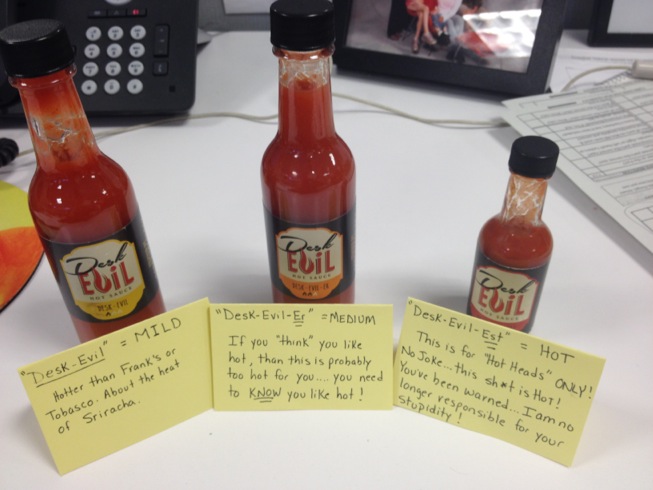 Desk
EVIL
HOT SAUCE
DESK-EVIL
Desk
EVIL
HOT SAUCE
DESK-EVIL-ER
Desk
EVIL
HOT SAUCE
"Desk-Evil" = MILD
Hotter than Frank's or
Tobasco. About the heat
of Sriracha.
"Desk-Evil-Er" = MEDIUM
If you "think" you like
hot, than this is probably
too hot for you.... you need
to KNOW you like hot!
"Desk-Evil-Est" = HOT
This is for "Hot Heads" ONLY!
No Joke... this sh*t is Hot!
You've been warned... I am no
longer responsible for your
stupidity!